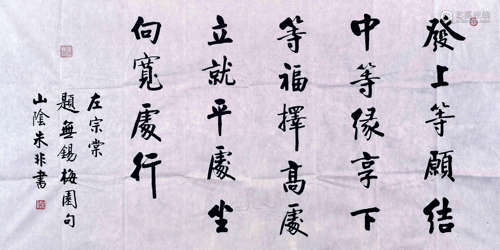 發上等願結
中等緣享下
等福擇高處
立就平處坐
向寬處行
左宗棠
題無錫梅園句
山陰朱非書